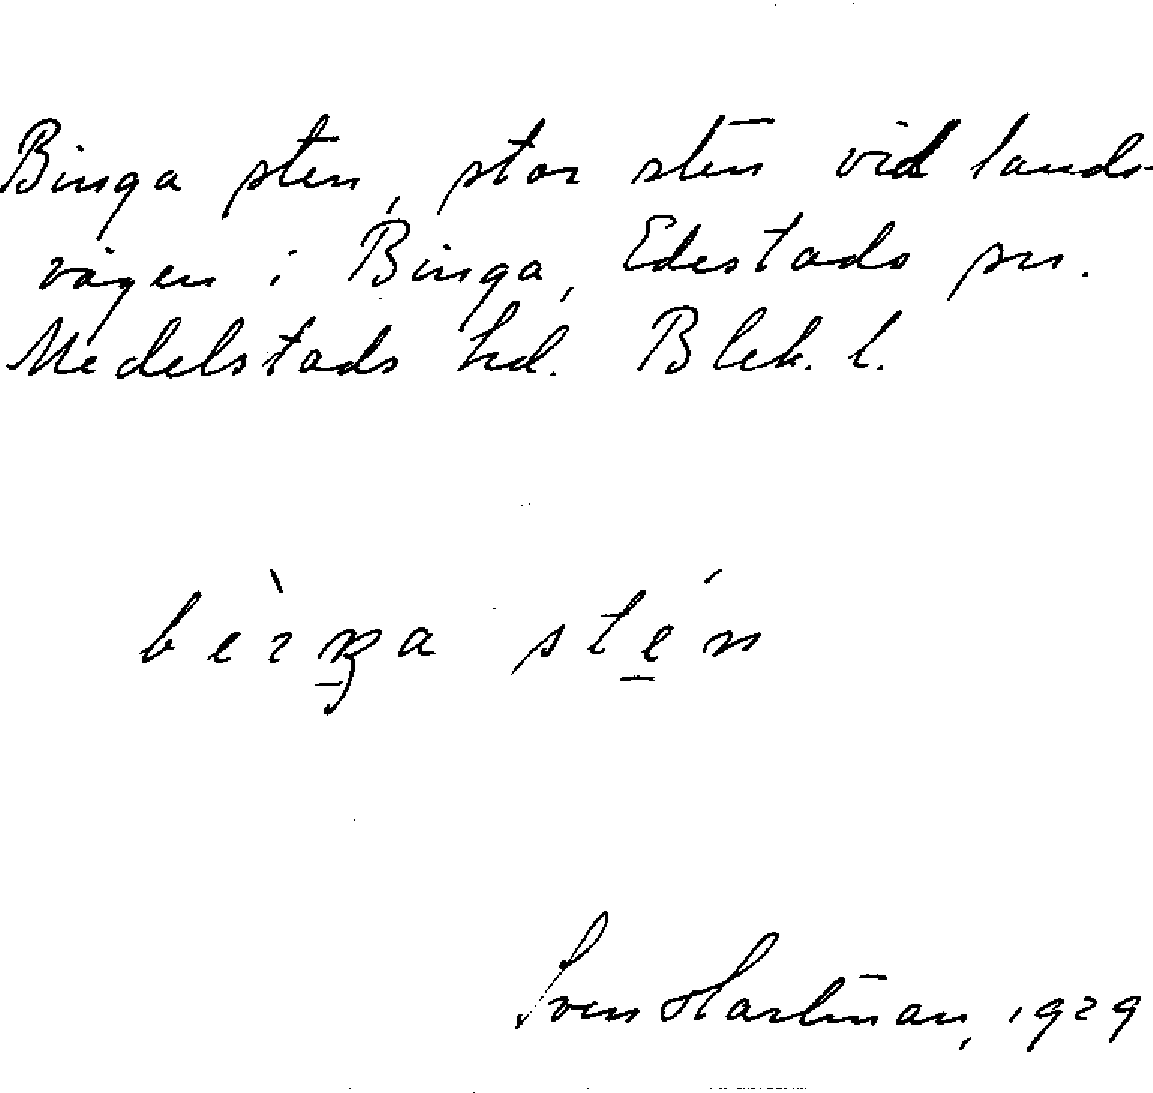 Binga sten, stor sten vid lands-
vägen i Binga, Edestads sn.
Medelstads hd. Blek. l.
stén
Sven Hartman, 1929